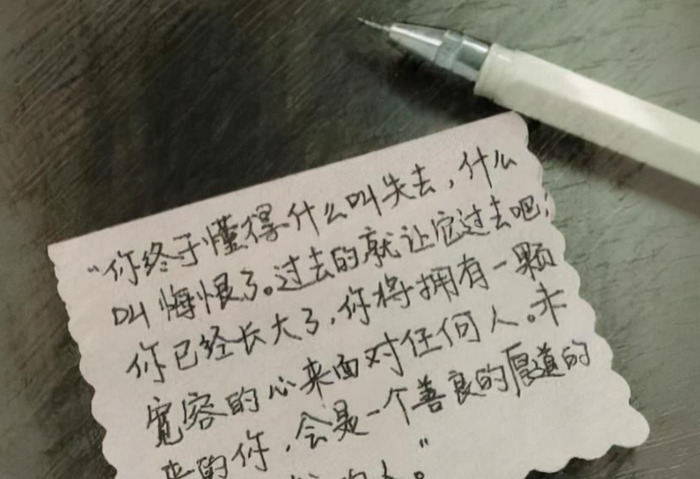 “你终于懂得什么叫失去，什么
叫悔恨了。过去的就让它过去吧，
你已经长大了，你将拥有一颗
宽容的心来面对任何人。未
来的你，会是一个善良的厚道的
的人。”